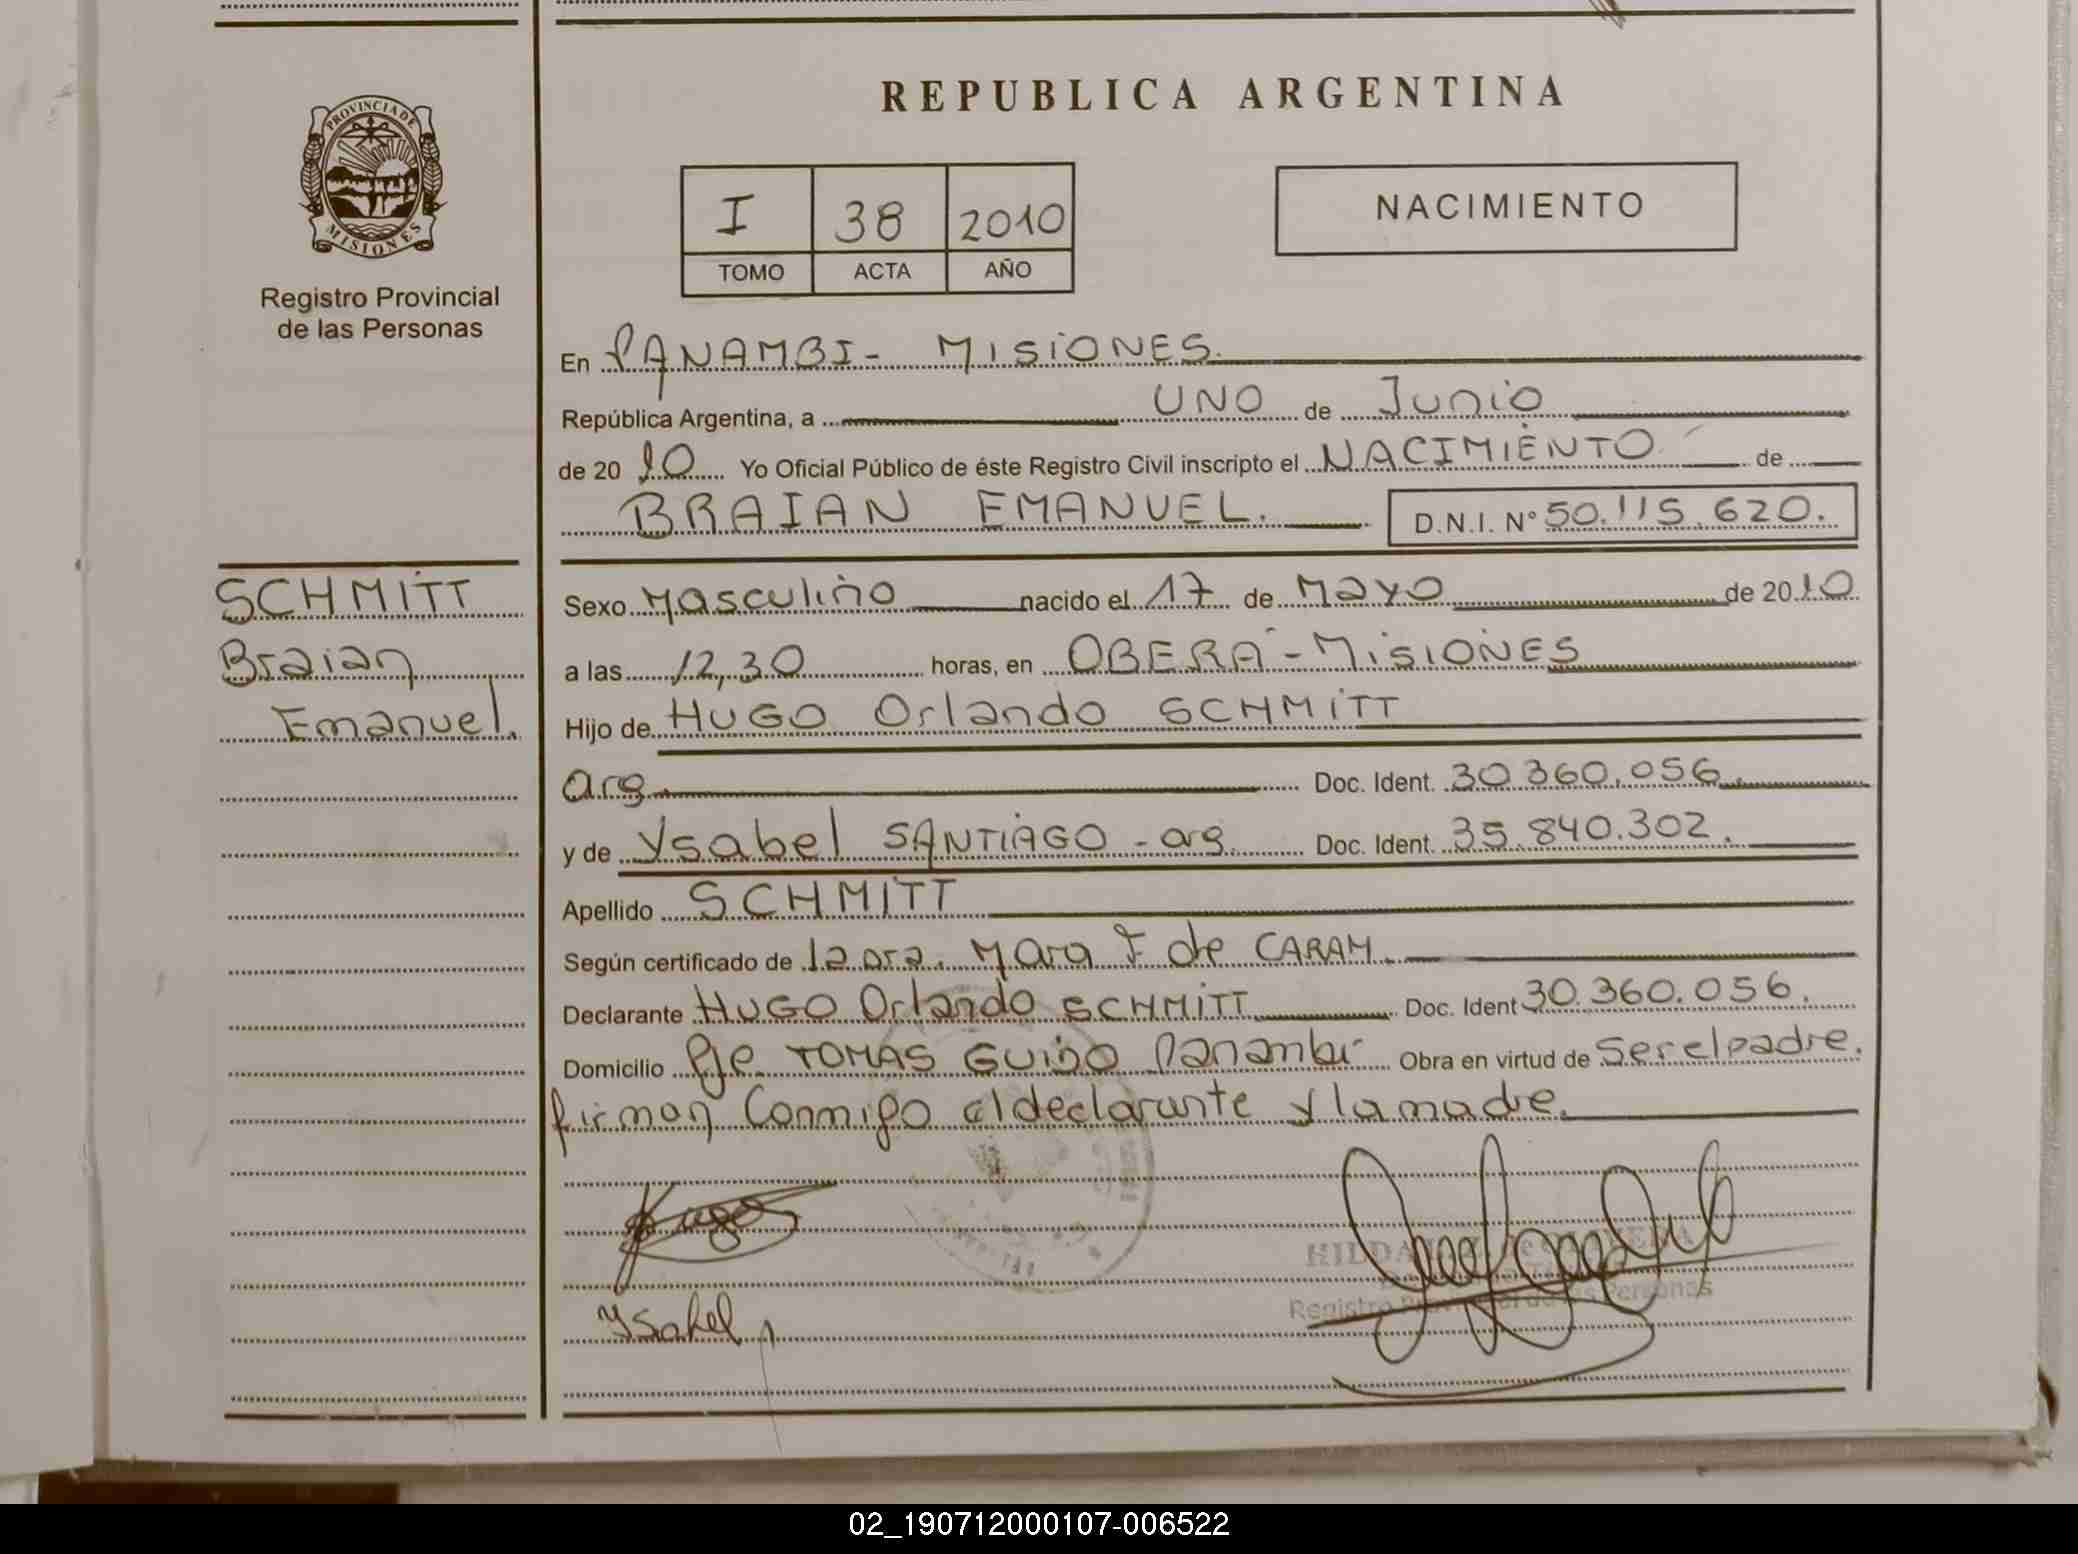 REPUBLICA ARGENTINA
PROVINCIA DE
MISIONES
Registro Provincial
de las Personas
I 38 2010
TOMO ACTA AÑO
NACIMIENTO
En PANAMBI - MISIONES.
República Argentina, a UNO de Junio
de 20 10 Yo Oficial Público de éste Registro Civil inscripto el NACIMIENTO de
BRAIAN EMANUEL. D.N.I. Nº 50.115.620.
SCHMITT
Braian
Emanuel.
Sexo Masculino nacido el 17 de Mayo de 2010
a las 12,30 horas, en OBERÁ - MISIONES
Hijo de HUGO Orlando SCHMITT
arg. Doc. Ident. 30.360.056.
y de Ysabel SANTIAGO - arg. Doc. Ident. 35.840.302.
Apellido SCHMITT
Según certificado de la Dra. Mara F de CARAM.
Declarante HUGO Orlando SCHMITT Doc. Ident 30.360.056.
Domicilio Pje. TOMAS GUIDO Panambi Obra en virtud de ser el padre.
firman Conmigo el declarante y la madre.
Hugo
Ysabel
HILDA
Registro Provincial de las Personas
02_190712000107-006522